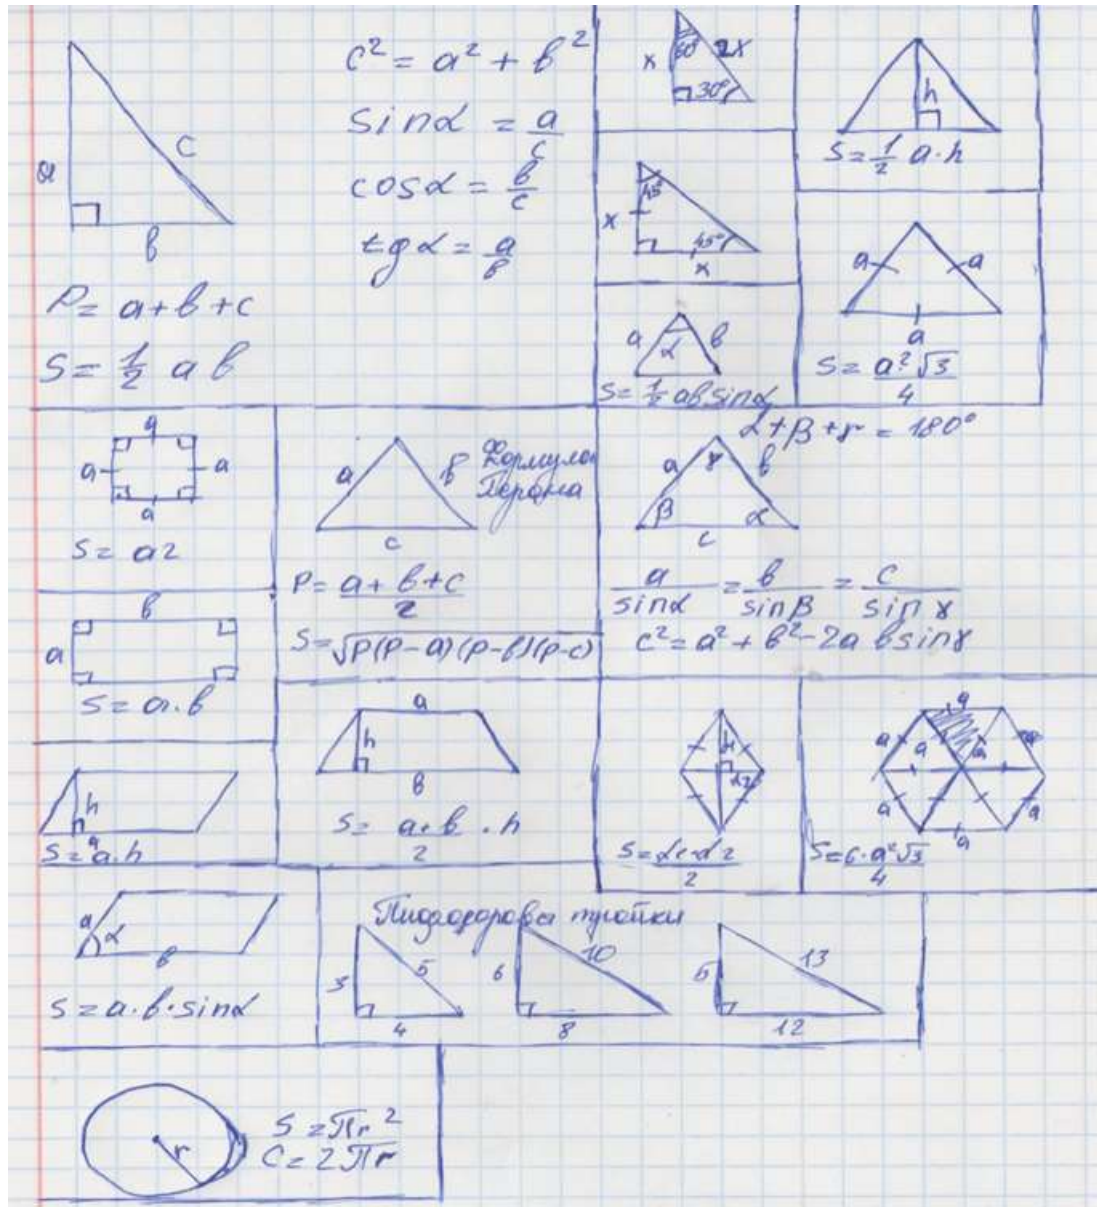 c² = a² + b²
sinα = a/c
cosα = b/c
tgα = a/b
a
c
b
P = a + b + c
S = 1/2 ab
60°
x
2x
30°
45°
x
45°
x
a
α
b
S = 1/2 ab sinα
h
S = 1/2 a·h
a
a
a
S = a²√3/4
a
a
a
a
S = a2
b
a
S = a·b
h
a
S = a·h
a
α
b
S = a·b·sinα
a
b
c
Формула
Герона
P = a + b + c/2
S = √P(P-a)(P-b)(P-c)
a
h
b
S = a+b·h
2
α + β + γ = 180°
a
γ
b
β
α
c
a/sinα = b/sinβ = c/sinγ
c² = a² + b² - 2a b sinγ
d2
2
a
a
a
a
a
a
a
S = 6·a²√3/4
тройки
3
5
4
6
10
8
5
13
12
r
S = πr²
C = 2πr